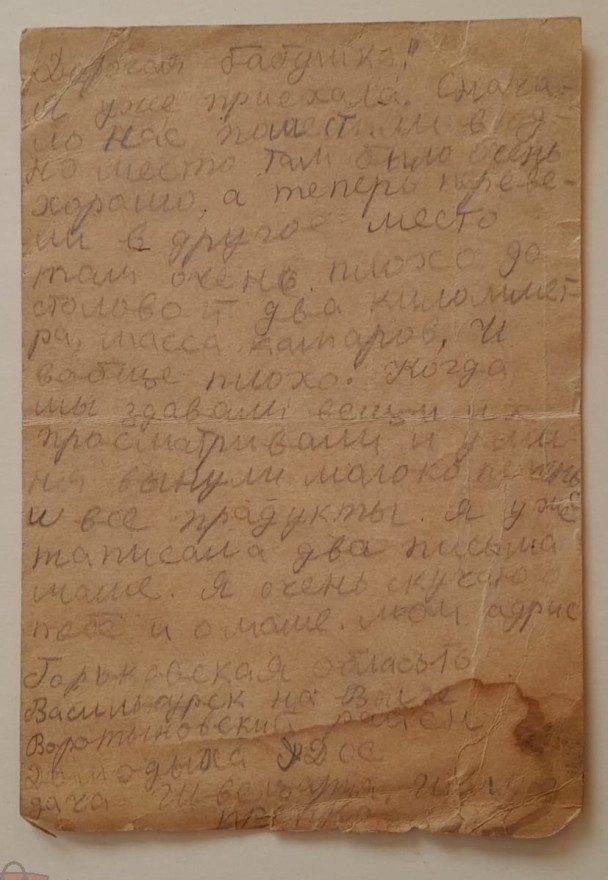 Дорогая бабушка!
Я уже приехала. Снача-
ло нас поместили в од-
но место там было очень
хорошо, а теперь переве-
ли в другое место
там очень плохо до
столовой два киломмет-
ра, масса камаров. И
вобще плохо. Когда
мы здавали вещи их
просматривали и у ме-
ня вынули молоко печень
и все продукты. Я уже
написала два письма
маме. Я очень скучаю о
тебе и о маме. Мой адрис
Горьковская область
Васильсурск на Волге
Воротыновский район
Дом отдыха
дача